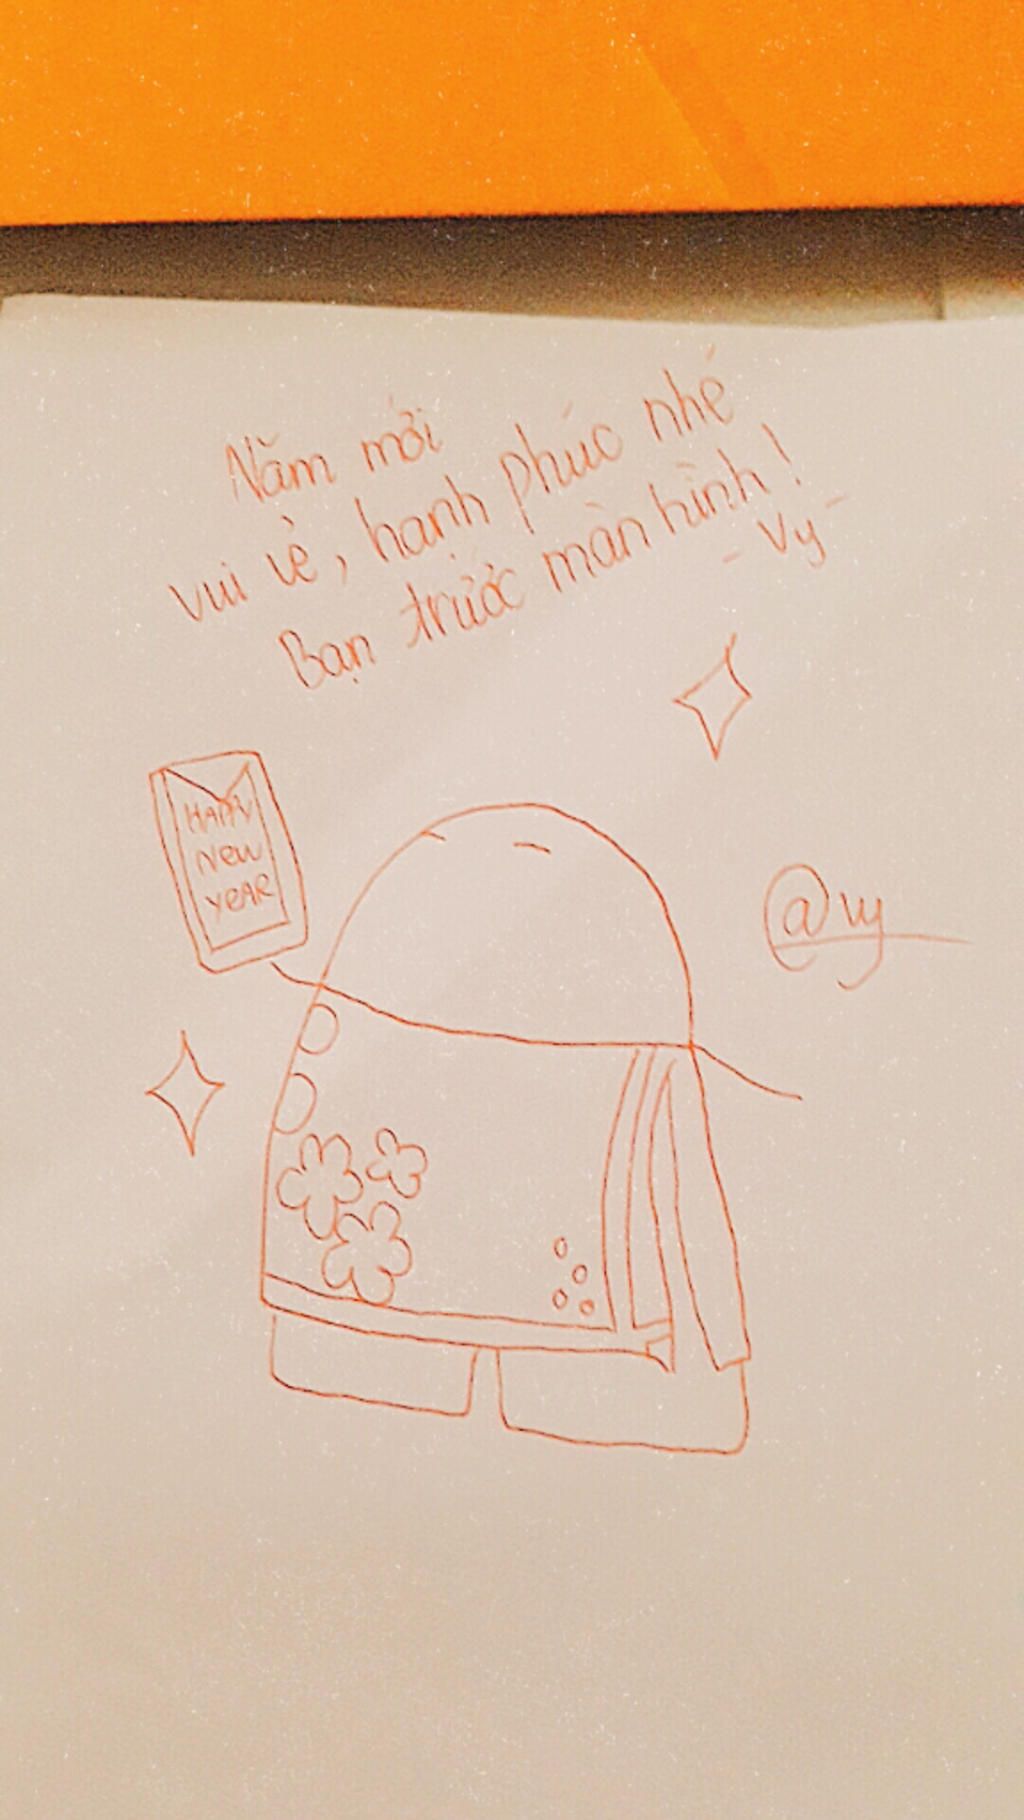 Năm mới
vui vẻ, hạnh phúc nhé
Bạn trước màn hình!
- Vy -
HAPPY
New
YeAR
@vy